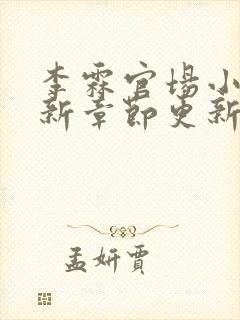 李霖官场小
新章节更新
孟妍賈